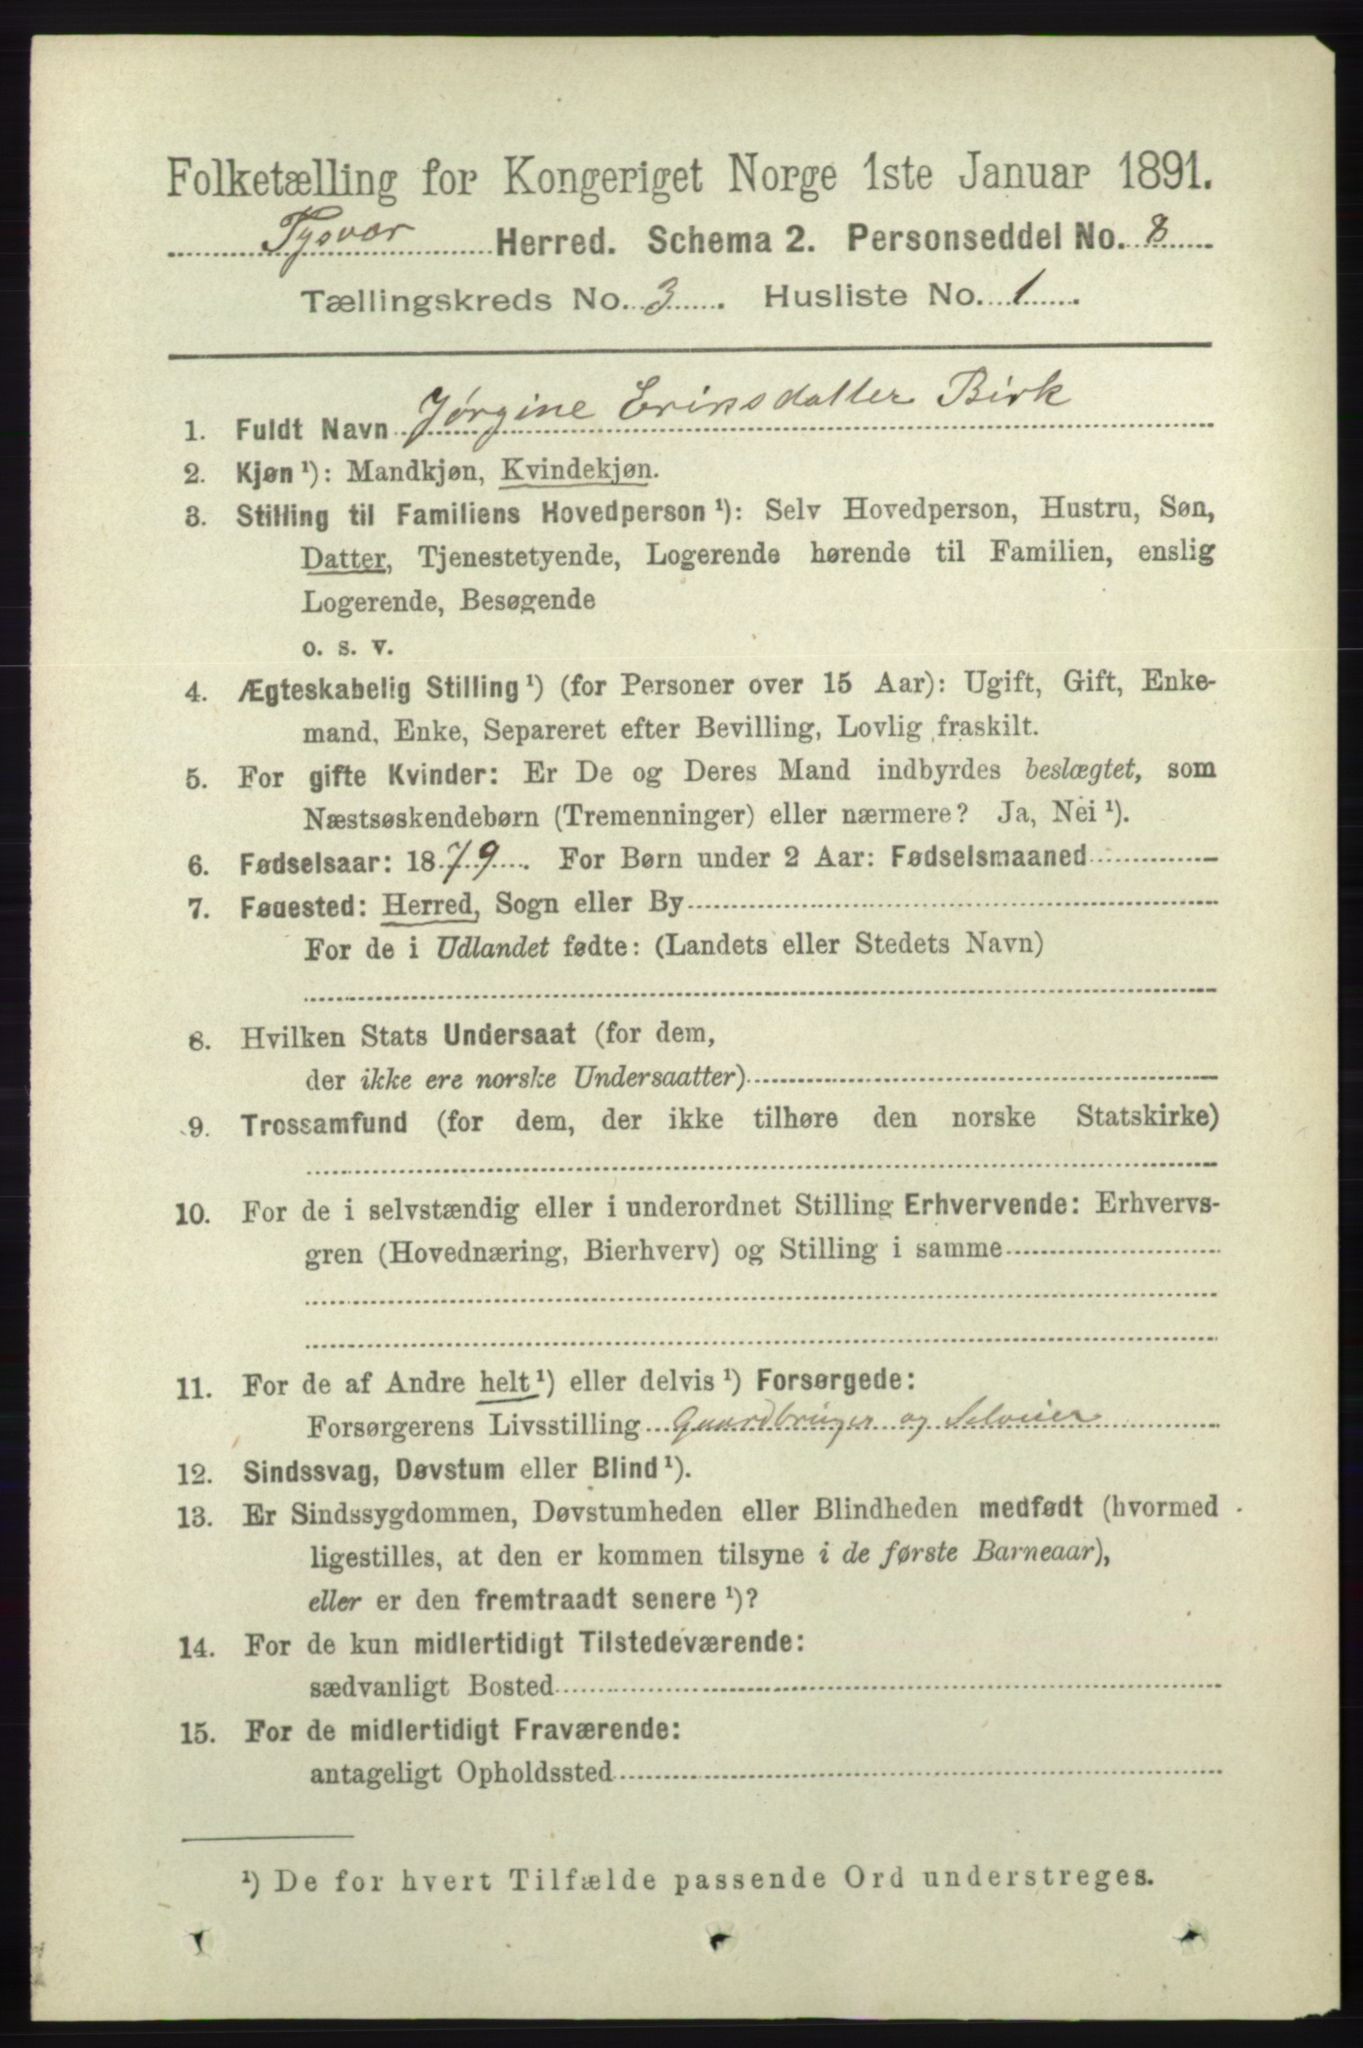 Folketælling for Kongeriget Norge 1ste Januar 1891.
Tysvær Herred. Schema 2. Personseddel No. 8
Tællingskreds No. 3. Husliste No. 1.
1. Fuldt Navn Jørgine Eriksdatter Birk
2. Kjøn ¹): Mandkjøn, Kvindekjøn.
3. Stilling til Familiens Hovedperson ¹): Selv Hovedperson, Hustru, Søn,
Datter, Tjenestetyende, Logerende hørende til Familien, enslig
Logerende, Besøgende
o. s. v.
4. Ægteskabelig Stilling ¹) (for Personer over 15 Aar): Ugift, Gift, Enke-
mand, Enke, Separeret efter Bevilling, Lovlig fraskilt.
5. For gifte Kvinder: Er De og Deres Mand indbyrdes beslægtet, som
Næstsøskendebørn (Tremenninger) eller nærmere? Ja, Nei ¹).
6. Fødselsaar: 1879. For Børn under 2 Aar: Fødselsmaaned
7. Fødested: Herred, Sogn eller By
For de i Udlandet fødte: (Landets eller Stedets Navn)
8. Hvilken Stats Undersaat (for dem,
der ikke ere norske Undersaatter)
9. Trossamfund (for dem, der ikke tilhøre den norske Statskirke)
10. For de i selvstændig eller i underordnet Stilling Erhvervende: Erhvervs-
gren (Hovednæring, Bierhverv) og Stilling i samme
11. For de af Andre helt ¹) eller delvis ¹) Forsørgede:
Forsørgerens Livsstilling Gaardbruger og Selveier
12. Sindssvag, Døvstum eller Blind ¹).
13. Er Sindssygdommen, Døvstumheden eller Blindheden medfødt (hvormed
ligestilles, at den er kommen tilsyne i de første Barneaar),
eller er den fremtraadt senere ¹)?
14. For de kun midlertidigt Tilstedeværende:
sædvanligt Bosted
15. For de midlertidigt Fraværende:
antageligt Opholdssted
¹) De for hvert Tilfælde passende Ord understreges.